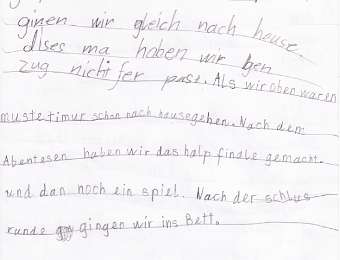 ginen wir gleich nach heuse.
dises ma hoben wir den
zug nicht fer pase. Als wir oben waren
muste timur schon nach hausegehen. Nach dem
Abentesen haben wir das halp finale gemacht.
und dan noch ein spiel. Nach der schlus
runde gingen wir ins Bett.